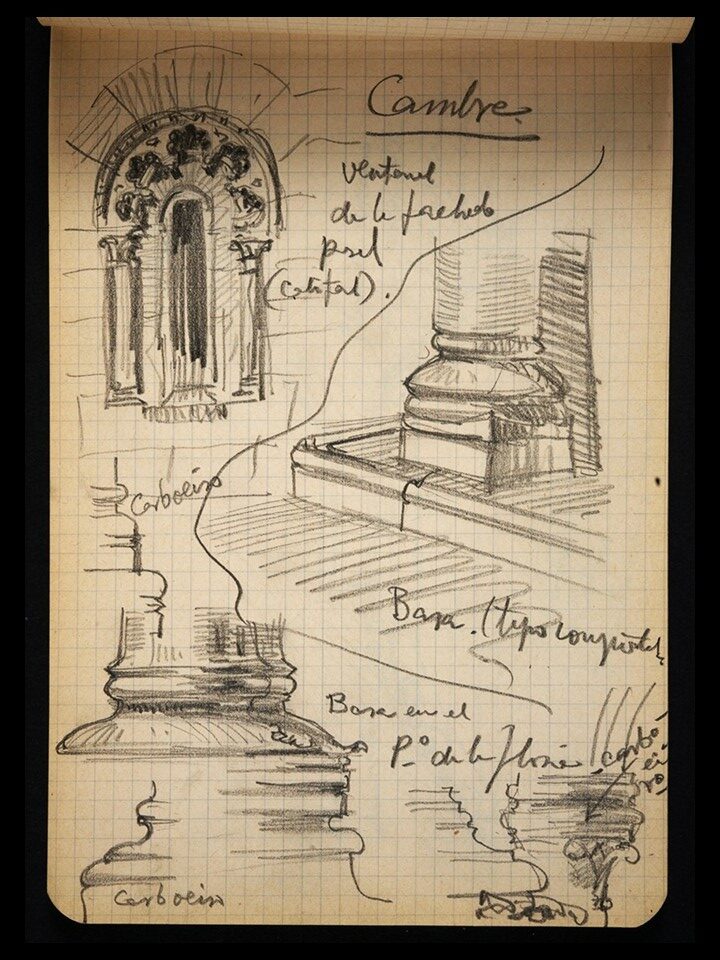 Cambre.
ventanal
de la fachada
pral
Carboeiro
Basa. (tipo compostel
Basa en el
P.º de la Gloria
carbo-
ei-
ro
Carboeiro